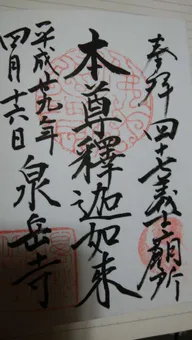 奉拝 四十七義士廟所
本尊釋迦如來
平成廿九年
四月十六日
泉岳寺